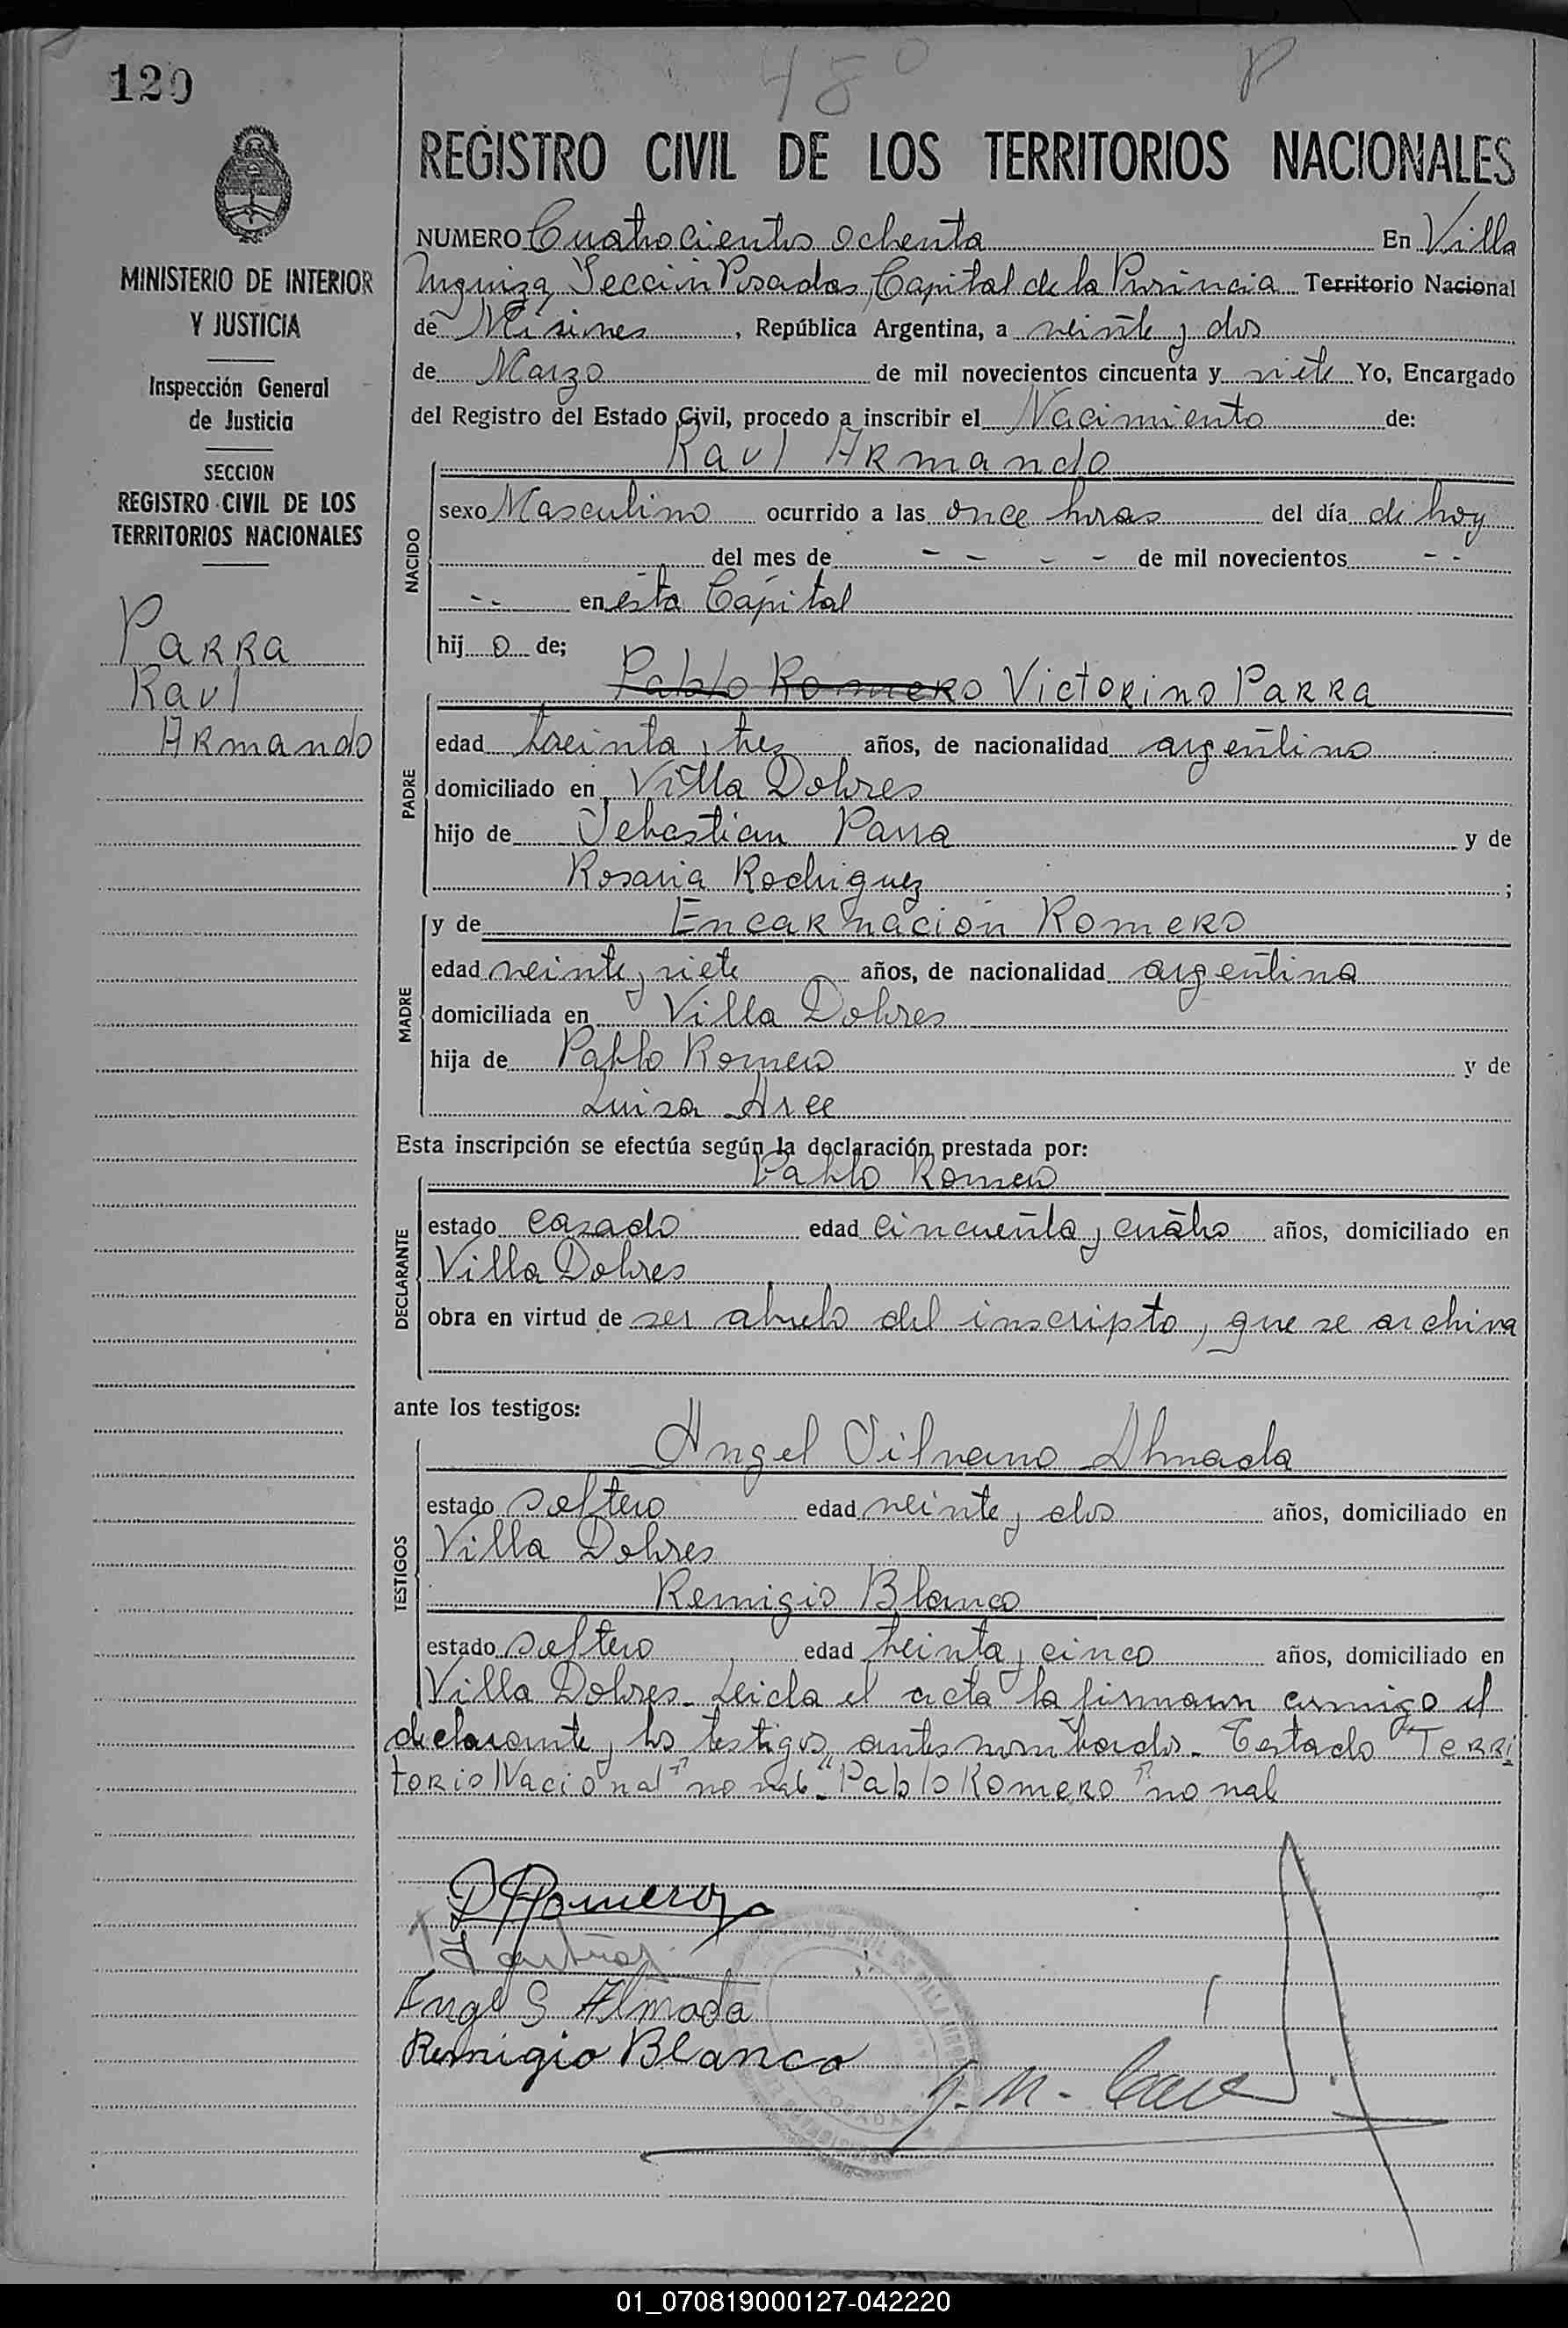 120
480
P
REGISTRO CIVIL DE LOS TERRITORIOS NACIONALES
MINISTERIO DE INTERIOR
Y JUSTICIA
Inspección General
de Justicia
SECCION
REGISTRO CIVIL DE LOS
TERRITORIOS NACIONALES
PARRA
Raul
ARmando
NUMERO Cuatrocientos ochenta En Villa
Urquiza, Sección Posadas, Capital de la Provincia Territorio Nacional
de Misiones, República Argentina, a veinte y dos
de Marzo de mil novecientos cincuenta y siete Yo, Encargado
del Registro del Estado Civil, procedo a inscribir el Nacimiento de:
Raul ARmando
NACIDO
sexo Masculino ocurrido a las once horas del día de hoy
del mes de - - - - de mil novecientos - -
-- en ésta Capital
hij o de;
Pablo Romero Victorino Parra
PADRE
edad treinta y tres años, de nacionalidad argentino
domiciliado en Villa Dolores
hijo de Sebastian Parra y de
Rosaria Rodriguez ;
MADRE
y de Encarnación Romero
edad veinte y siete años, de nacionalidad argentina
domiciliada en Villa Dolores
hija de Pablo Romero y de
Luisa Arce
Esta inscripción se efectúa según la declaración prestada por:
Pablo Romero
DECLARANTE
estado casado edad cincuenta y cuatro años, domiciliado en
Villa Dolores
obra en virtud de ser abuelo del inscripto, que se archiva
ante los testigos:
Angel Silvano Almada
TESTIGOS
estado soltero edad veinte y dos años, domiciliado en
Villa Dolores
Remigio Blanco
estado soltero edad treinta y cinco años, domiciliado en
Villa Dolores. Leida el acta la firmaron conmigo el
declarante y los testigos antes nombrados. Testado "Terri
torio Nacional" no vale. "Pablo Romero" no vale
P Romero
Angel S Almada
Remigio Blanco
01_070819000127-042220